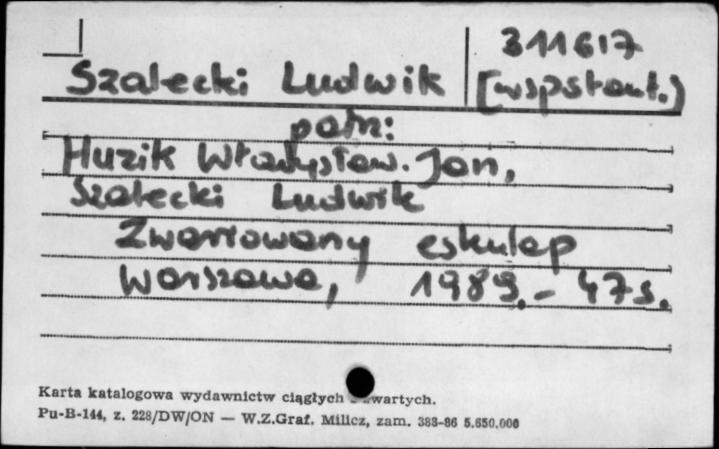 311617
Szałecki Ludwik [współaut.)
patrz:
Huzik Władysław. Jan,
Szałecki Ludwik
Zwariowany eskulap
Warszawa, 1989.- 47s.
Karta katalogowa wydawnictw ciągłych wartych.
Pu-B-144, z. 228/DW/ON — W.Z.Graf. Milicz, zam. 383-86 5.650.000